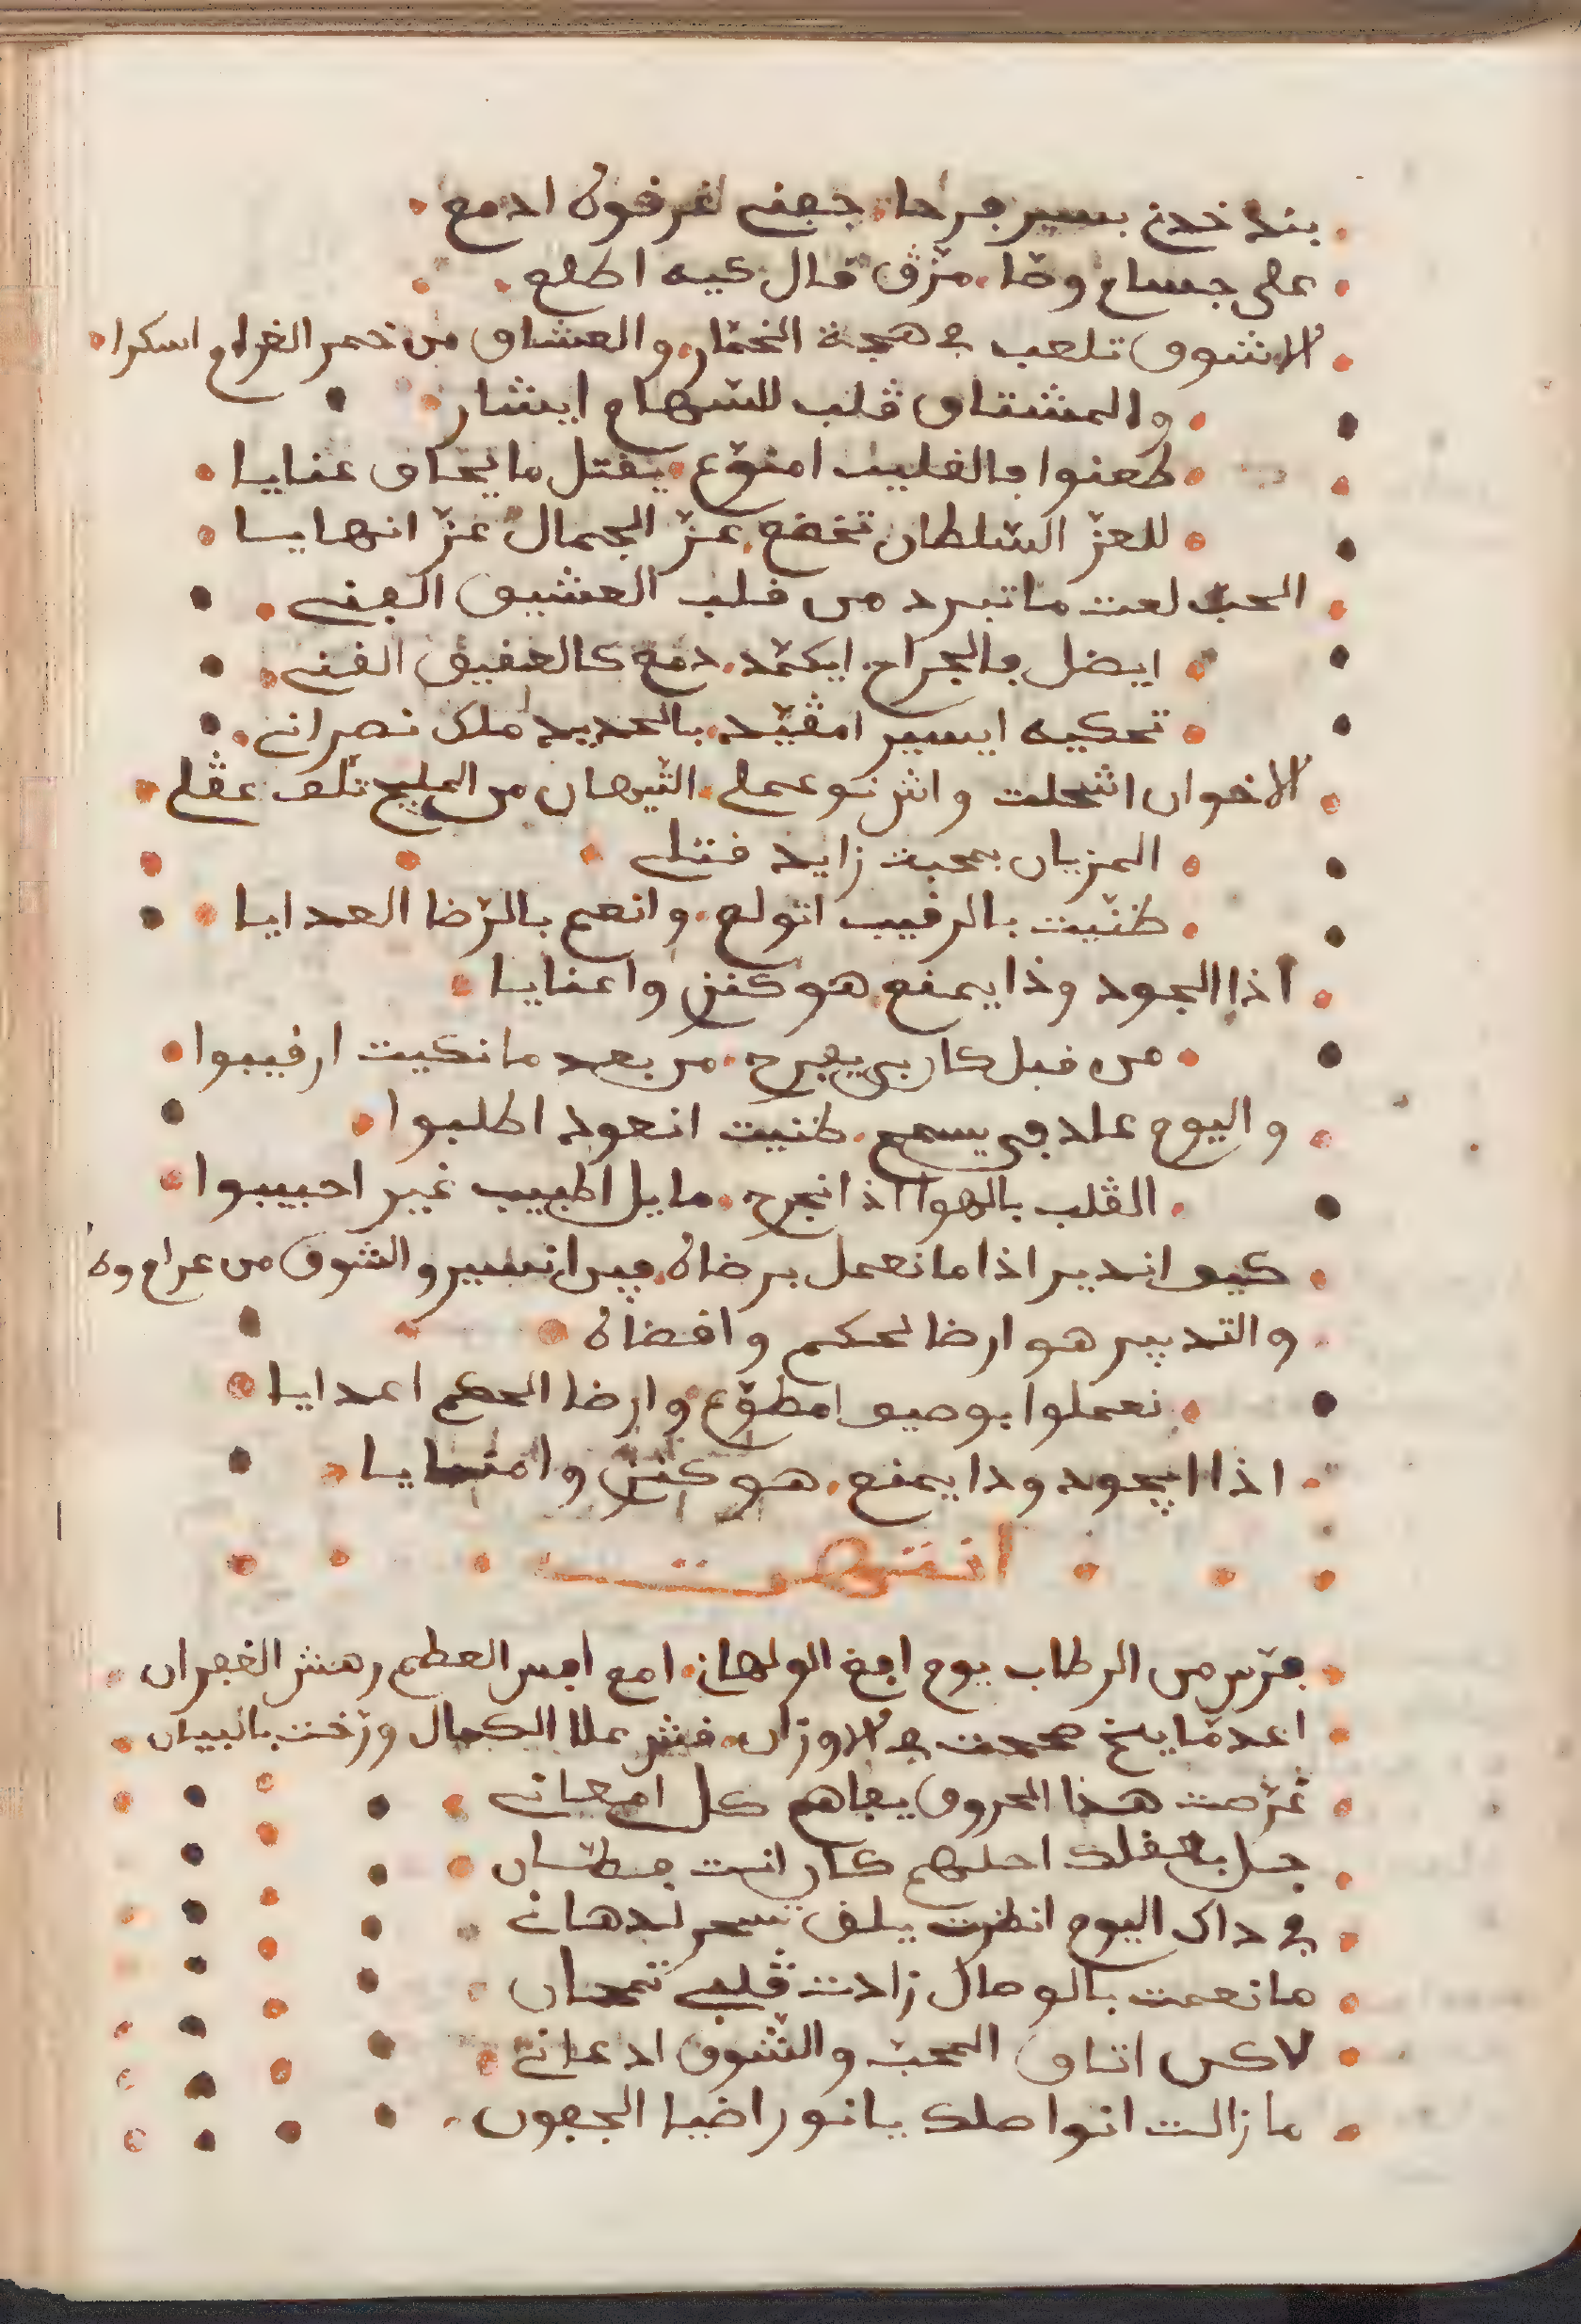 بند خدن بسير جرحا جفني غرقوه ادمع
على جساح وضا مزڤ قال كيه اطلع
الاشوق تلعب في هجة الخمار والعشاق من خمر الغرام اسكرا
والمشتاق ڤلب للسهام ايشار
طعنوا فالقليب امنوع يقتل ما يخاف عنايا
للعز السلطان تخضع عز الجمال عز انهايا
الحب لعت ما تبرد من قلب العشيق الفني
ايضل فالجراح ايكمد دمع كالعقيق القني
تحكيه ايسير امڤيد بالحديد ملك نصراني
الاخوان اشحلت واش نوعملي التيهان من المليح تلف عڤلي
المزيان بمحبت زايد قتلي
ظنيت بالرقيب اتولع وانعم بالرضا العدايا
اذا ايجود وذا يمنع هو كنز واعنايا
من قبل كان بي يفرح من بعد ما نكيت ارقيبوا
واليوم عاد في يسمح ظنيت انعود اطلبوا
الڤلب بالهوا اذا انجرح ما يل اطبيب غير احبيبوا
كيف اندير اذا ما نعمل برضاه فيرا نسير والشوق من عرام وه
والتدبير هو ارضا لحكم واقضاه
نعملوا بوصيف امطوع وارضا الحكم اعدايا
اذا ايجود وذا يمنع هو كنز وامنايا
انتهت
من الرطاب يوم الولهان امع العظيم رهش الغفران
صححت في الاوزان علا الكمال ورخت بالبيان
هذا الحروف يفاهم كل امعاني
جل بعقلك احلهم كان انت فطان
في داك اليوم انظرت يلف تسحر لدهاني
ما نعمت بالوصال زادت ڤلبي تمحان
لاكن اتاق المحب والشوق ادعاني
ما زالت انواصلك يا نور اضيا الجفون